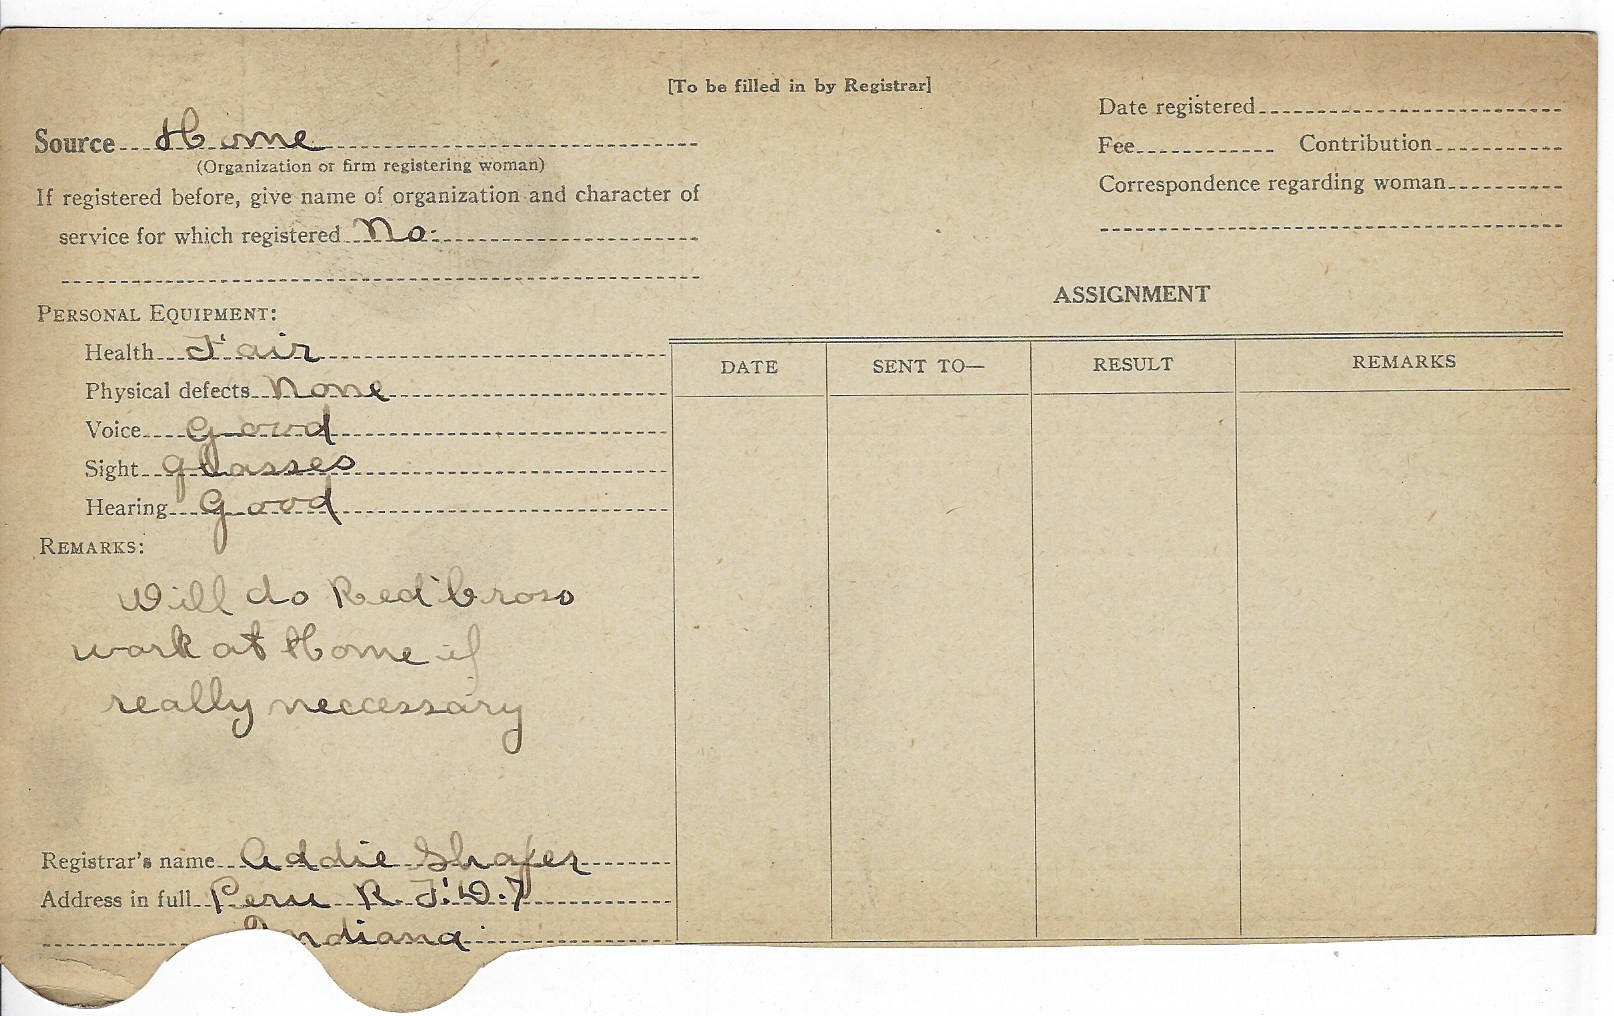 [To be filled in by Registrar]
Source Home
(Organization or firm registering woman)
If registered before, give name of organization and character of
service for which registered No.
PERSONAL EQUIPMENT:
Health Fair
Physical defects None
Voice Good
Sight glasses
Hearing Good
REMARKS:
Will do Red Cross
work at Home if
really neccessary
Registrar's name Addie Shafer
Address in full Peru R.F.D.7
Indiana
Date registered
Fee Contribution
Correspondence regarding woman
ASSIGNMENT
DATE SENT TO— RESULT REMARKS